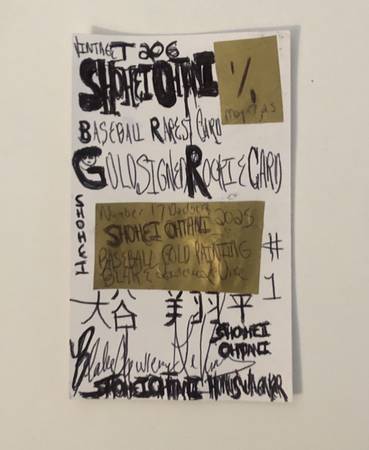 VINTAGE T206
SHOHEI OHTANI
1/1
BASEBALL RAREST CARD
GOLD SIGNED ROOKIE CARD
SHOHEI
Number 17 Dodgers
SHOHEI OHTANI 2025
BASEBALL GOLD PAINTING
#1
大谷 翔平
SHOHEI
OHTANI
Blake
SHOHEI OHTANI HONUS WAGNER